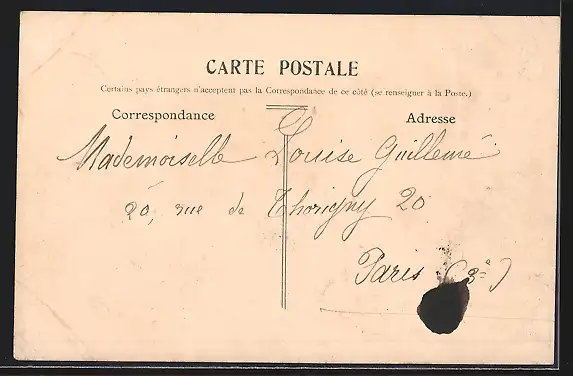 CARTE POSTALE
Certains pays étrangers n'acceptent pas la Correspondance de ce côté (se renseigner à la Poste.)
Correspondance
Adresse
Mademoiselle Louise Guillemé
20, rue de Thorigny 20
Paris (3e)